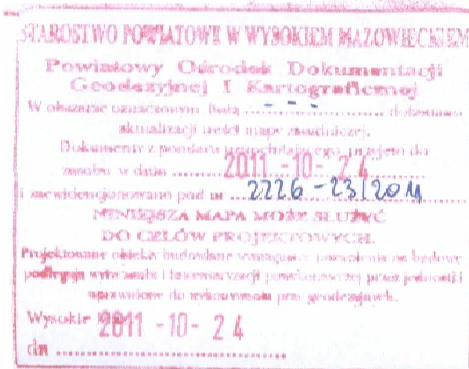 STAROSTWO POWIATOWE W WYSOKIEM MAZOWIECKIEM
Powiatowy Ośrodek Dokumentacji
Geodezyjnej I Kartograficznej
W obszarze oznaczonym linią ... - - - ... dokonano
aktualizacji treści mapy zasadniczej.
Dokument z pomiaru uzupełniającego przyjęto do
zasobu w dniu 2011 -10- 24
i zaewidencjonowano pod nr 2226-23/2011
NINIEJSZA MAPA MOŻE SŁUŻYĆ
DO CELÓW PROJEKTOWYCH.
Projektowane obiekty budowlane wymagające pozwolenia na budowę
podlegają wytyczeniu i inwentaryzacji powykonawczej przez jednostki
uprawnione do wykonywania prac geodezyjnych.
Wysokie 2011 -10- 24
dn